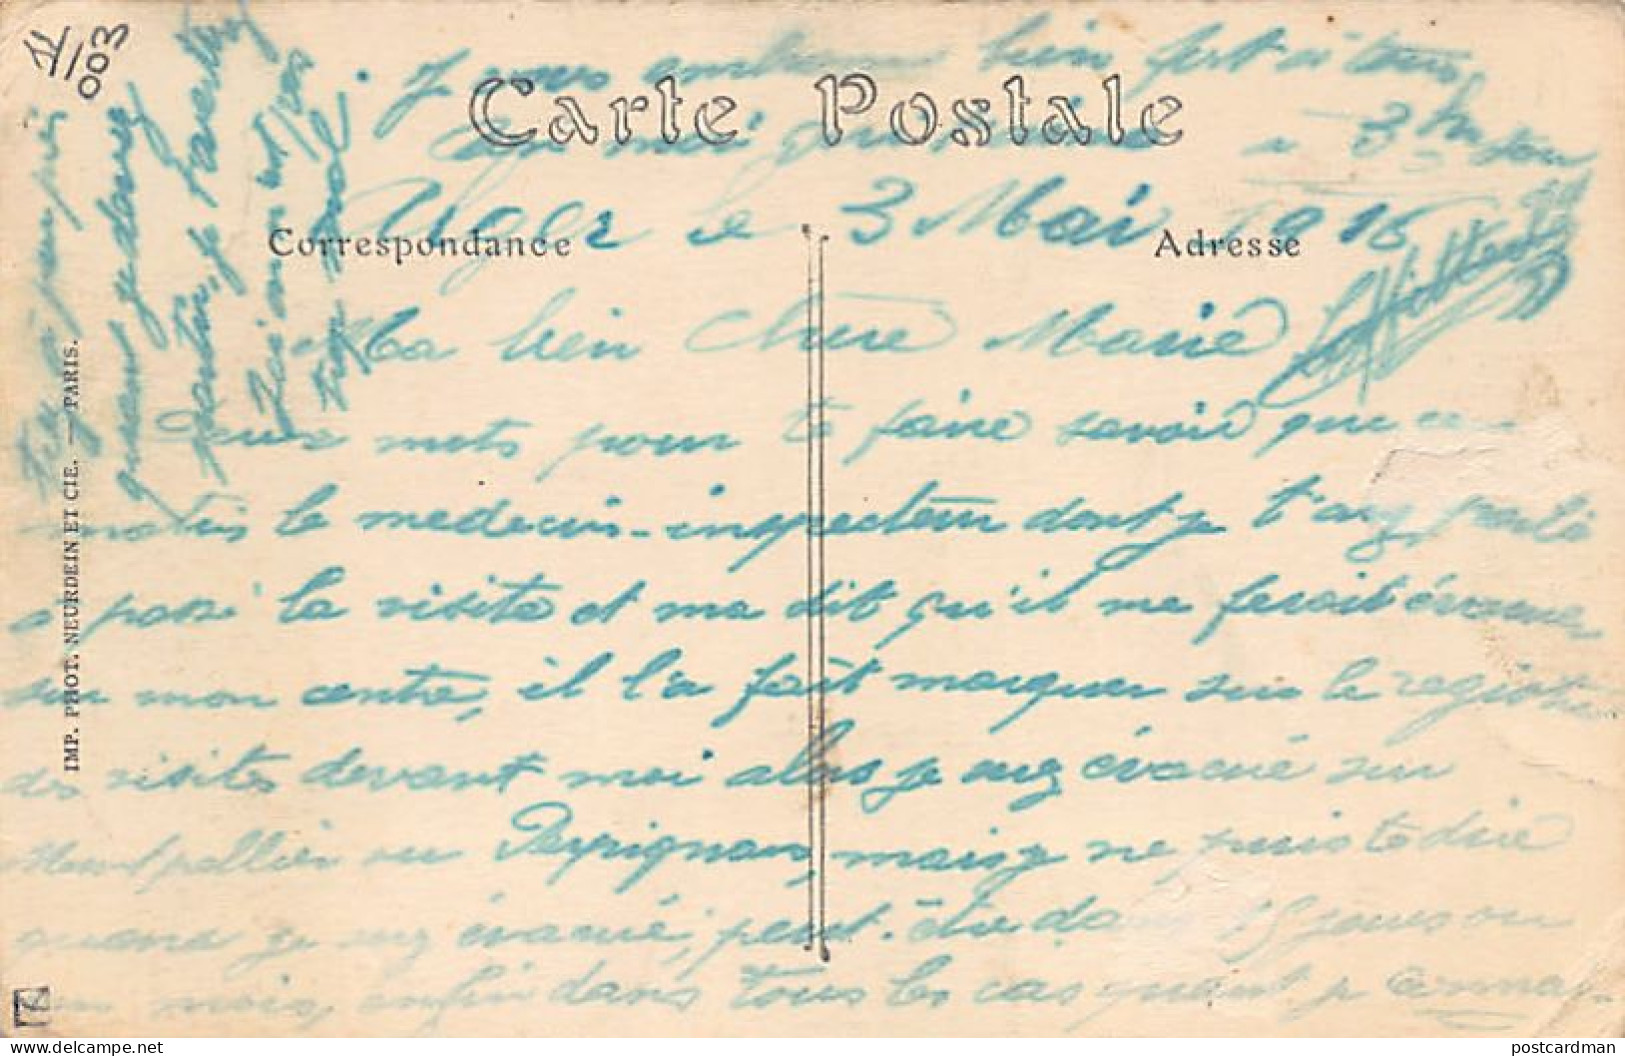 Carte Postale
Correspondance
Adresse
IMP. PHOT. NEURDEIN ET CIE. — PARIS.
11/003
Alger le 3 Mai 1916
Ma bien Chère Marie
Deux mots pour te faire savoir que ce
matin le medecin-inspecteur dont je t'ai parlé
a passé la visite et ma dit qu'il me ferait évacuer
sur mon centre, il l'a fait marquer sur le registre
des visites devant moi alors je serez évacué sur
Montpellier ou Perpignan, mais je ne puis te dire
quand je serez évacué, peut-être dans 15 jours ou
un mois, enfin dans tous les cas quant je
tu à peu près
quand je
partirai, je t'avertirai
J' vous embrasse bien fort à tous
postcardman